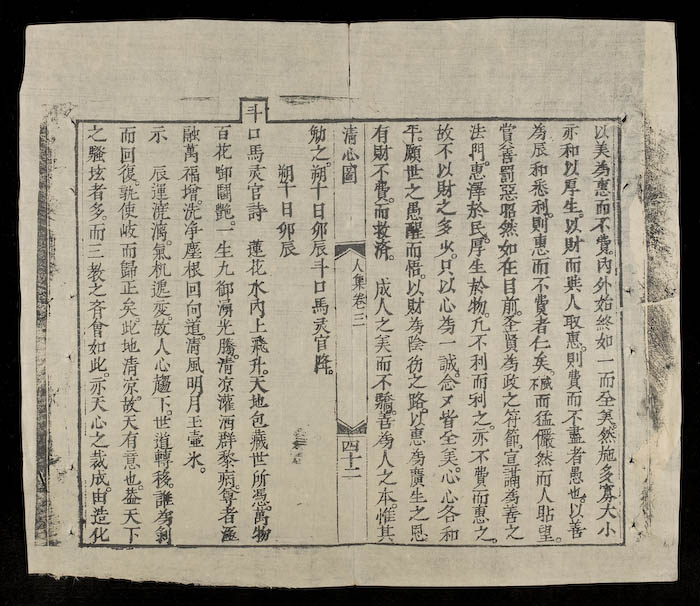 以美為惠而不費內外始終如一而全美然施多寡大小
亦和以厚生以財而與人取惠則費而不盡者愚也以善
為辰和悉利則惠而不費者仁矣威而猛儼然而人貼望
賞善罰惡昭然如在目前圣賢為政之符節宣誦為善之
法門惠澤於民厚生於物凢不利而利之亦不費而惠之
故不以財之多少只以心為一誠念又皆全美心心各和
平願世之愚醒而悟以財為陰彷之路以惠為廣生之恩
有財不費而救濟 成人之美而不驕善為人之本惟其
清心圖
人集卷三
四十二
勉之朔十日卯辰斗口馬灵官降
朔十日卯辰
斗口馬灵官詩 蓮花水內上飛升天地包藏世所憑萬物
百花卿鬪艷一生九御濟光騰清凉灌酒群黎病尊者逐
融萬福增洗净塵根回向道清風明月玉壷氷
示 辰運澆漓氣机遞变故人心趨下世道轉移誰為剝
而回復孰使岐而歸正矣此地清凉故天有意也盖天下
之騷垓者多而三教之斉會如此亦天心之裁成由造化